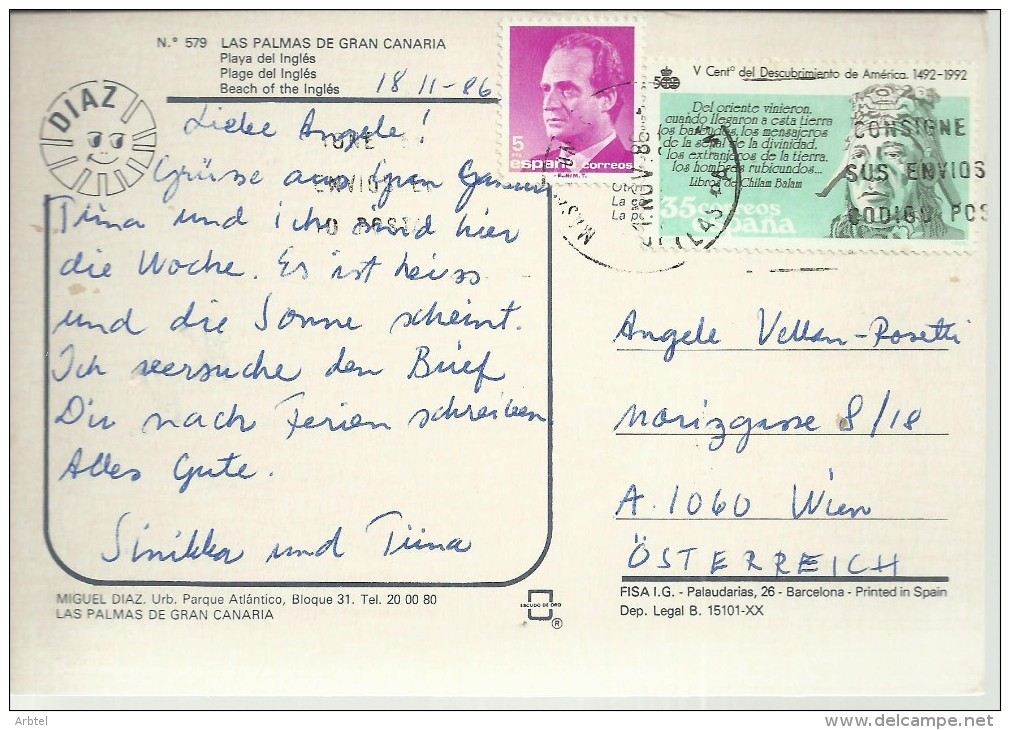 N.° 579 LAS PALMAS DE GRAN CANARIA
Playa del Inglés
Plage del Inglés
Beach of the Inglés
18 11-86
DIAZ
Liebe Angele!
Grüsse aus Gran Canaria
Tiina und ich sind hier
die Woche. Es ist heiss
und die Sonne scheint.
Ich versuche den Brief
Dir nach Ferien schreiben
Alles Gute.
Sinikka und Tiina
MIGUEL DIAZ. Urb. Parque Atlántico, Bloque 31. Tel. 20 00 80
LAS PALMAS DE GRAN CANARIA
ESCUDO DE ORO
®
5
PTA
españa correos
F.N.M.T.
V Centº del Descubrimiento de América. 1492-1992
Del oriente vinieron,
cuando llegaron a esta tierra
los barbudos, los mensajeros
de la señal de la divinidad,
los extranjeros de la tierra,
los hombres rubicundos...
Libros de Chilam Balam
35 correos
españa
CONSIGNE
SUS ENVIOS
CODIGO POS
ENVIOS EL
O POSTAL
NOV 86
Angele Vellan-Rosetti
Morizgasse 8/18
A. 1060 Wien
ÖSTERREICH
FISA I.G. - Palaudarias, 26 - Barcelona - Printed in Spain
Dep. Legal B. 15101-XX
Arbtel
www.delcampe.net